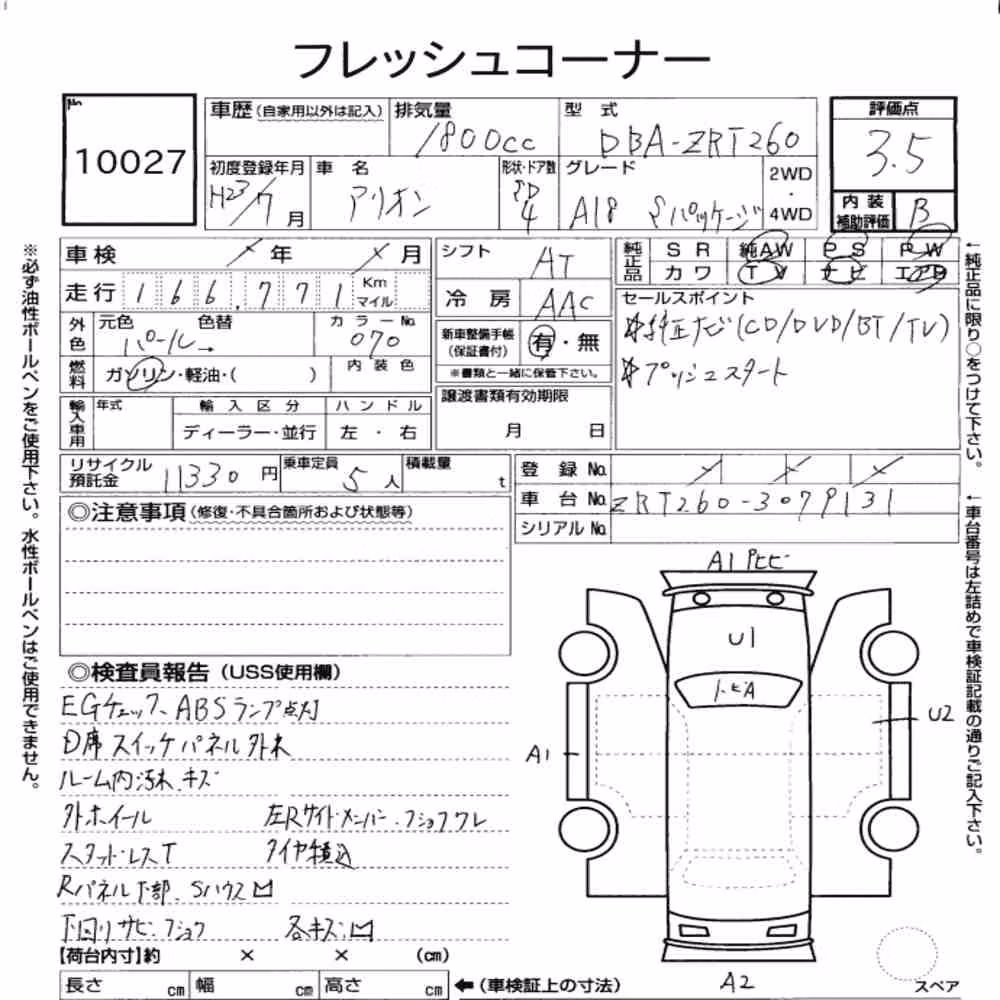 フレッシュコーナー
10027
車歴 (自家用以外は記入)
排気量
1800cc
型式
DBA-ZRT260
評価点
3.5
初度登録年月
H23/7月
車名
アリオン
形状・ドア数
4
グレード
A18 Sパッケージ
2WD
・
4WD
内装
補助評価
B
車検 年 月
シフト
AT
純正品
SR 純AW PS PW
カワ TV ナビ エアB
走行 166,771 Km マイル
冷房
AAC
セールスポイント
*純正ナビ(CD/DVD/BT/TV)
*プッシュスタート
外色
元色 色替
パール→
カラーNo.
070
新車整備手帳
(保証書付)
有・無
※書類と一緒に保管下さい。
燃料
ガソリン・軽油・( )
内装色
輸入車用
年式
輸入区分
ディーラー・並行
ハンドル
左・右
譲渡書類有効期限
月 日
リサイクル
預託金
11330円
乗車定員
5人
積載量
t
登録No.
車台No.
ZRT260-3079131
シリアルNo.
◎注意事項 (修復・不具合箇所および状態等)
◎検査員報告 (USS使用欄)
EGチェック、ABSランプ点灯
D席スイッチパネル外れ
ルーム内汚れ、キズ
外ホイール
左Rサイドメンバー、フショクワレ
スタッドレスT
タイヤ積込
Rパネル下部、Sハウス凹
下回りサビ、フショク
各キズ、凹
【荷台内寸】約 × × (cm)
長さ cm 幅 cm 高さ cm
←(車検証上の寸法)
A1 P
U1
トビA
A1
U2
A2
スペア
※必ず油性ボールペンをご使用下さい。水性ボールペンはご使用できません。
←純正品に限り○をつけて下さい。
←車台番号は左詰めで車検証記載の通りご記入下さい。